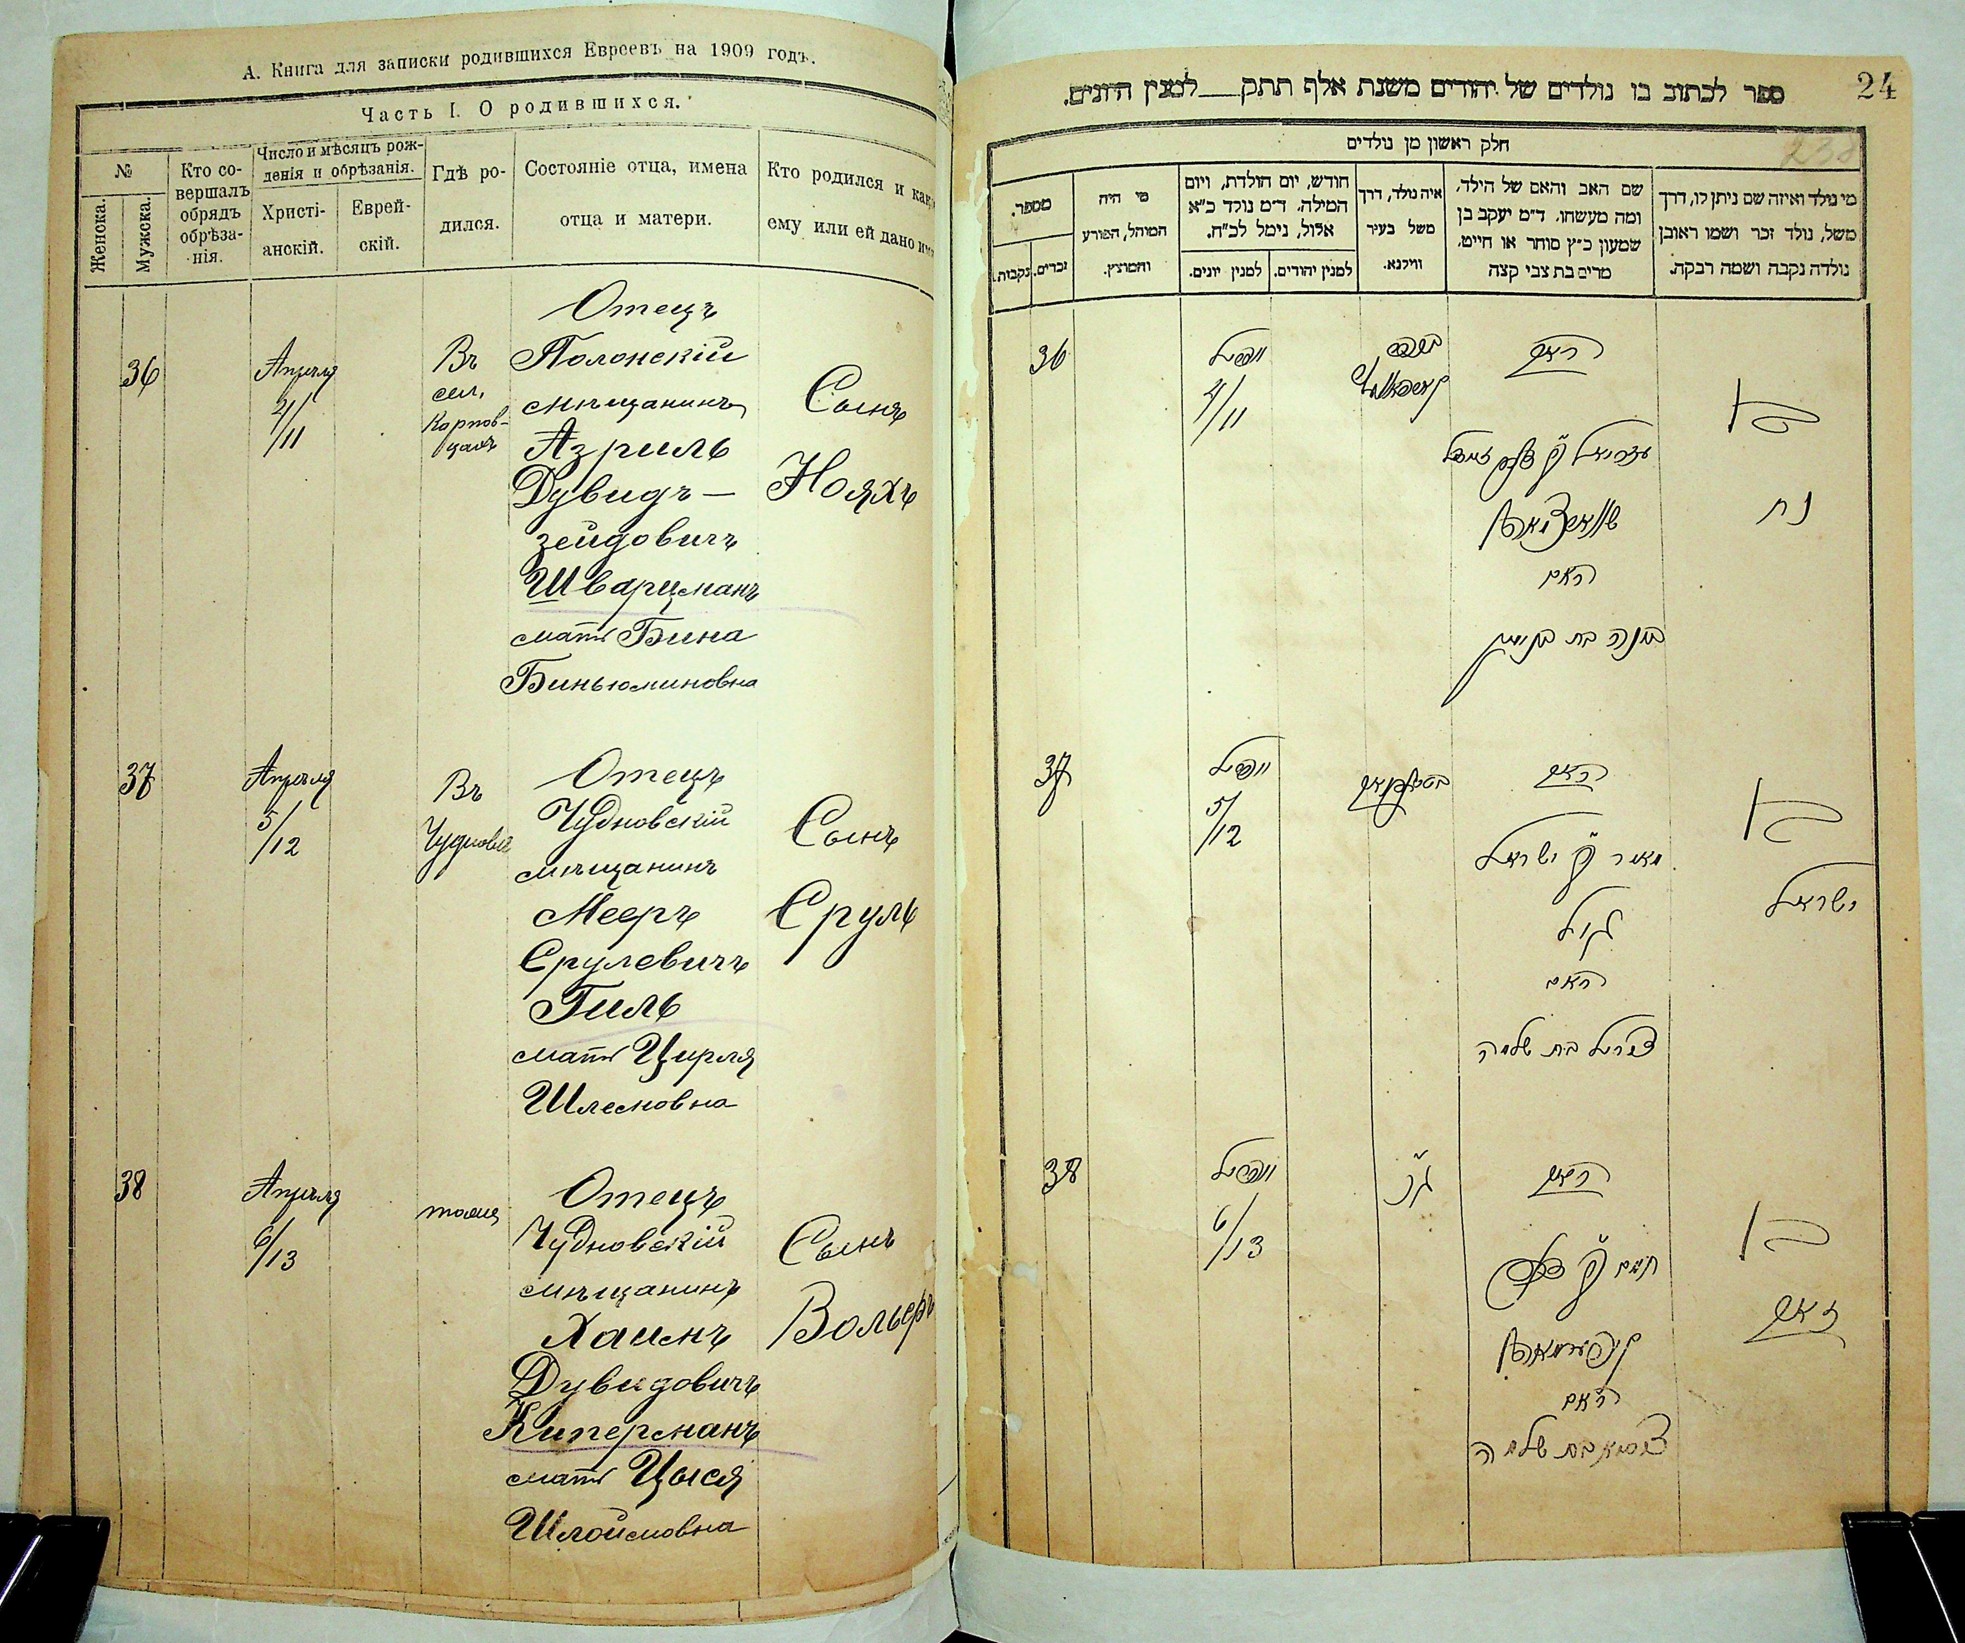 А. Книга для записки родившихся Евреевъ на 1909 годъ.
Часть I. О родившихся.
№
Женска.
Мужска.
Кто со-
вершалъ
обрядъ
обрѣза-
нія.
Число и мѣсяцъ рож-
денія и обрѣзанія.
Христі-
анскій.
Еврей-
скій.
Гдѣ ро-
дился.
Состояніе отца, имена
отца и матери.
Кто родился и какое
ему или ей дано имя
36
Апрѣля
4/11
Въ
сел.
Карпов-
цахъ
Отецъ
Полонскій
мѣщанинъ
Азриль
Дувидъ-
зейдовичъ
Шварцманъ
мать Бина
Биньюминовна
Сынъ
Нояхъ
37
Апрѣля
5/12
Въ
Чудновѣ
Отецъ
Чудновскій
мѣщанинъ
Мееръ
Срулевичъ
Гиль
мать Цирля
Шлемовна
Сынъ
Сруль
38
Апрѣля
6/13
тамъ
Отецъ
Чудновскій
мѣщанинъ
Хаимъ
Дувидовичъ
Киперманъ
мать Цыся
Шлоймовна
Сынъ
Вольфъ
24
238
ספר לכתוב בו נולדים של יהודים משנת אלף תתק__למנין היונים.
חלק ראשון מן נולדים
מספר.
נקבות.
זכרים.
מי היה
המוהל, הפורע
והמוצץ.
חודש, יום הולדת, ויום
המילה. ד״מ נולד כ״א
אלול, נימל לכ״ח.
למנין יונים.
למנין יהודים.
איה נולד, דרך
משל בעיר
ווילנא.
שם האב והאם של הילד,
ומה מעשהו. ד״מ יעקב בן
שמעון כ״ץ סוחר או חייט,
מרים בת צבי קצה
מי נולד ואיזה שם ניתן לו, דרך
משל, נולד זכר ושמו ראובן
נולדה נקבה ושמה רבקה.
36
אפריל
4/11
האב
עזריאל בן דוד זיידל
שווארצמאן
האם
בינה בת בנימין
בן
נח
37
אפריל
5/12
האב
מאיר בן ישראל
היל
האם
צירל בת שלמה
בן
ישראל
38
אפריל
6/13
האב
חיים בן דוד
קיפערמאן
האם
ציסיא בת שלמה
בן
זאב